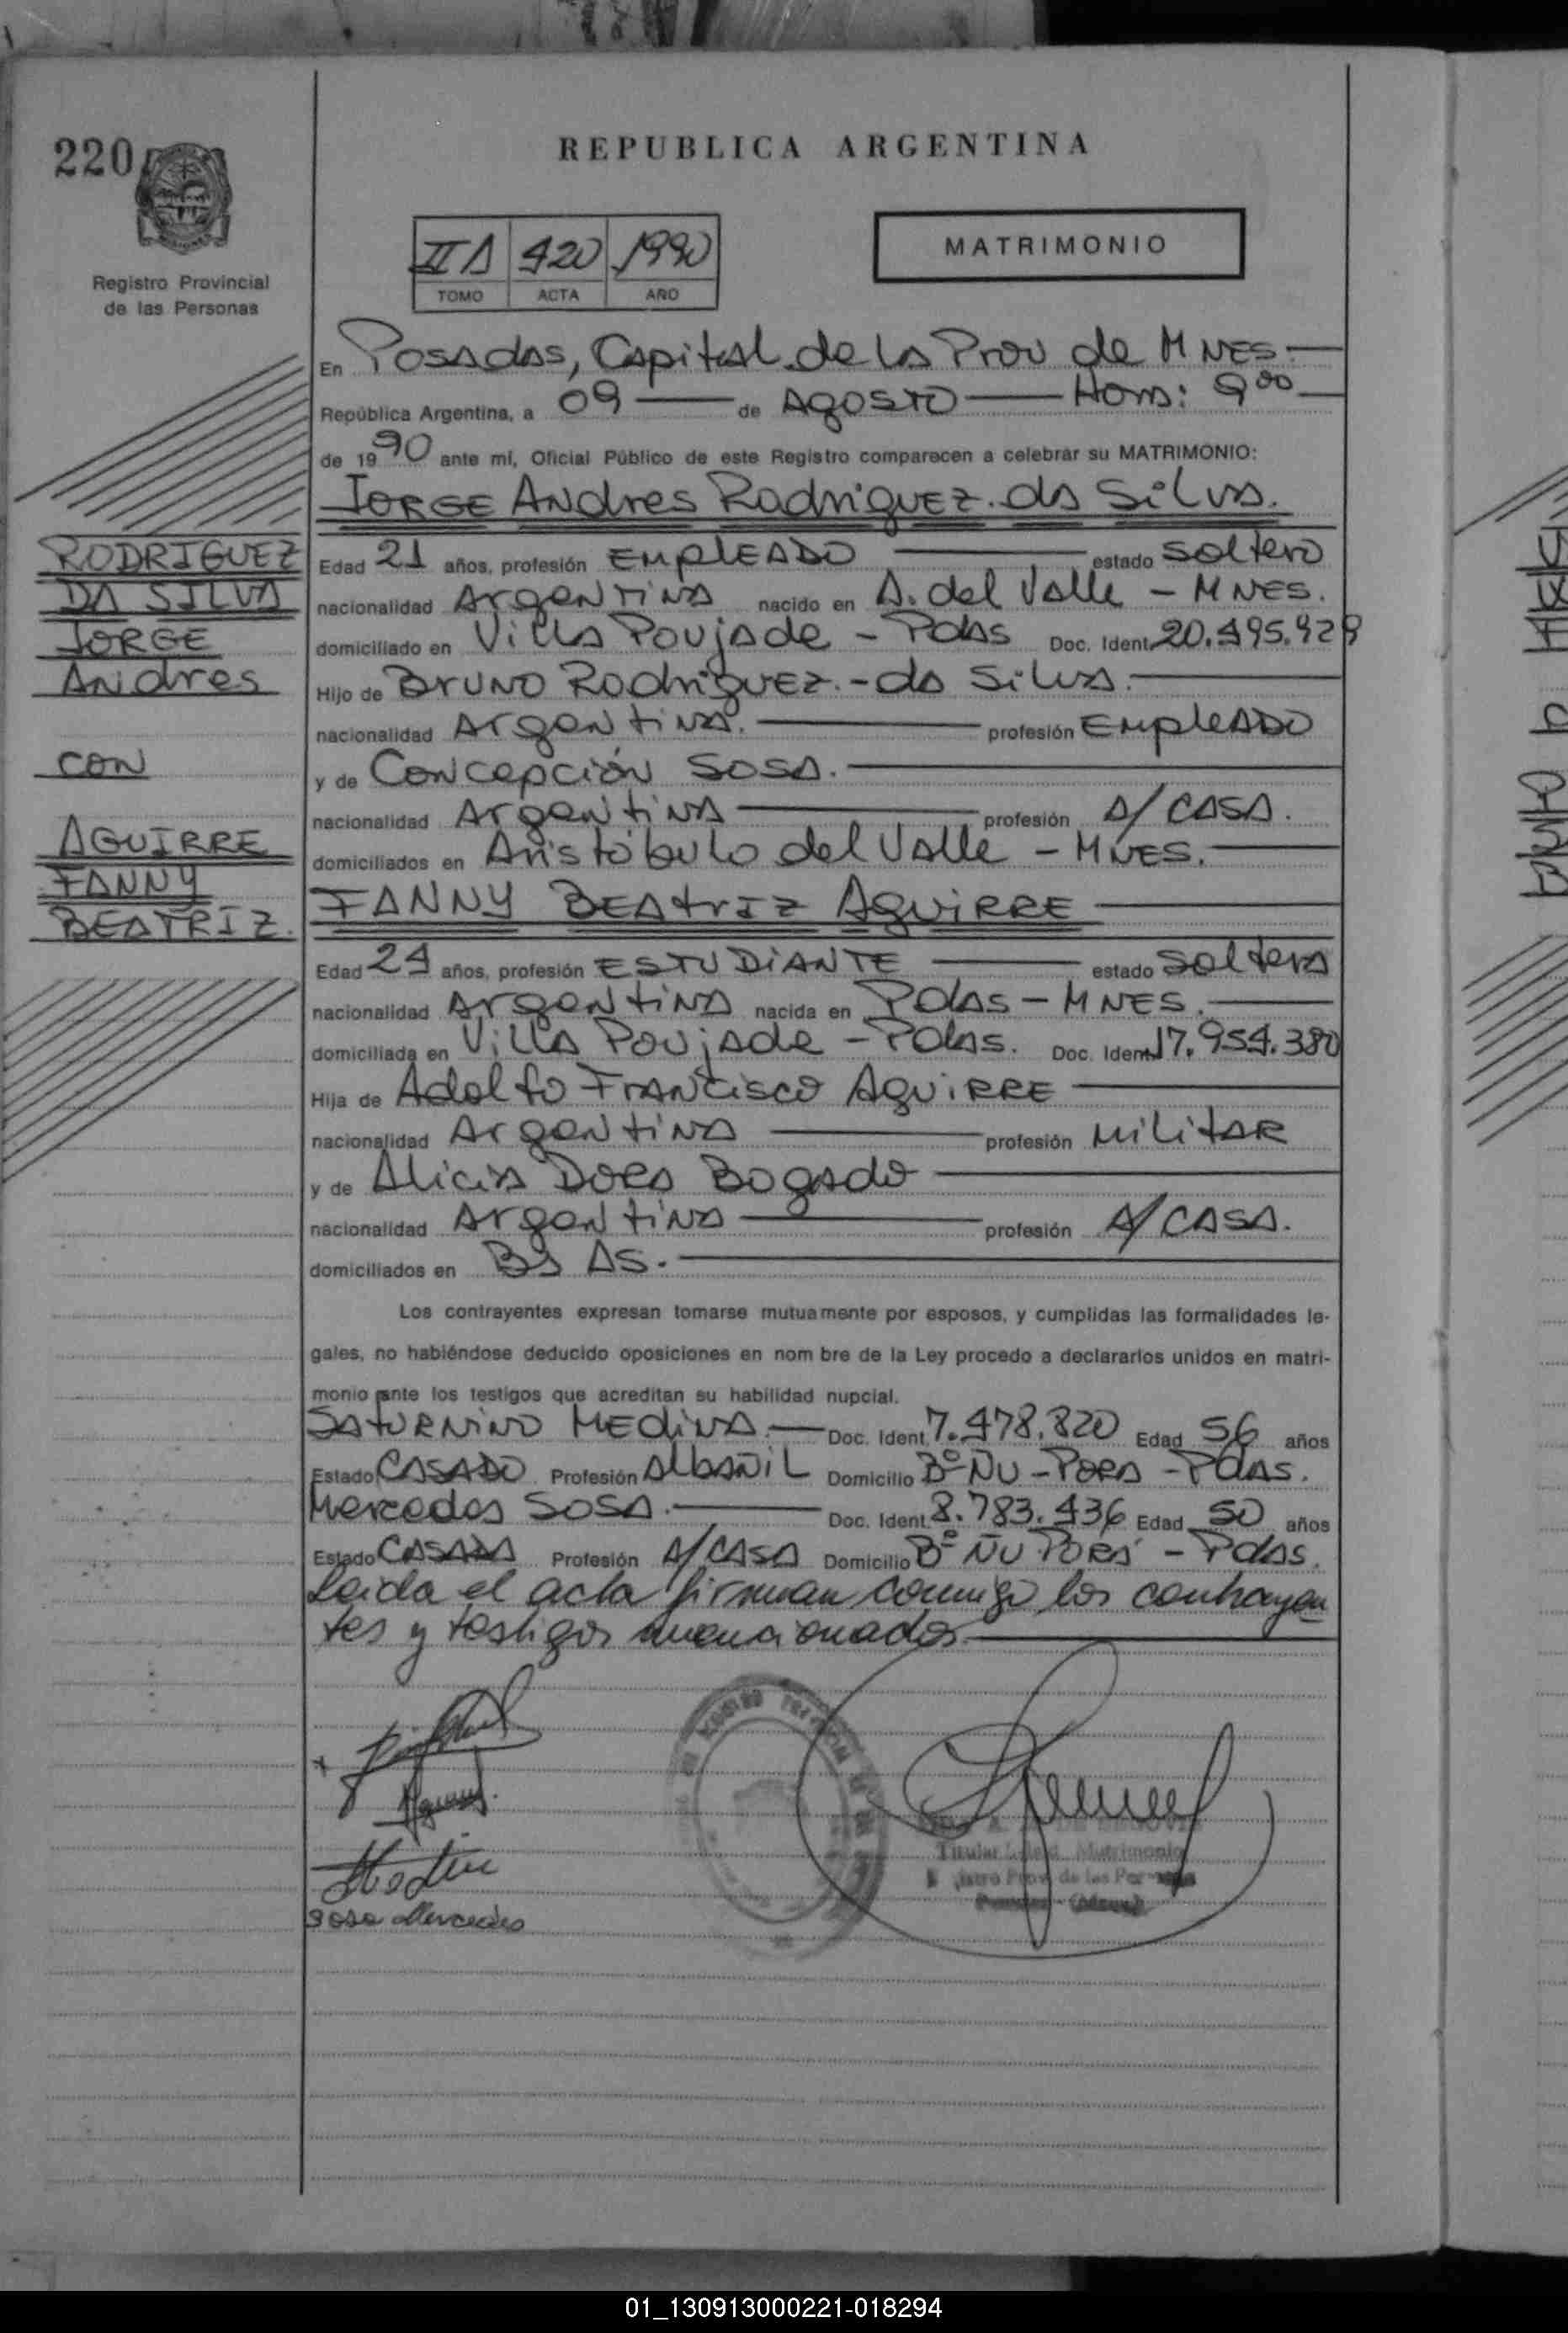 220
REPUBLICA ARGENTINA
Registro Provincial
de las Personas
II A 420 1990
TOMO ACTA AÑO
MATRIMONIO
En Posadas, Capital de la Prov de MNES.
República Argentina, a 09 de Agosto Hora: 9 00
de 1990 ante mí, Oficial Público de este Registro comparecen a celebrar su MATRIMONIO:
JORGE ANdres Rodriguez. da Silva.
Edad 21 años, profesión EMPLEADO estado Soltero
nacionalidad Argentina nacido en A. del Valle - MNES.
domiciliado en Villa Poujade - Pdas Doc. Ident. 20.495.429
Hijo de BRUNO Rodriguez.- da Silva.
nacionalidad Argentina. profesión EMPLEADO
y de Concepción SOSA.
nacionalidad Argentina profesión A/ CASA.
domiciliados en Aristóbulo del Valle - MNES.
FANNY BEAtrIZ AguiRRE
Edad 24 años, profesión ESTUDIANTE estado Soltera
nacionalidad Argentina nacida en Pdas - MNES.
domiciliada en Villa Poujade - Pdas. Doc. Ident. 17.954.380
Hija de Adolfo FRANcisco AguiRRE
nacionalidad Argentina profesión MilitAR
y de Alicia DORA Bogado
nacionalidad Argentina profesión A/ CASA.
domiciliados en Bs AS.
Los contrayentes expresan tomarse mutuamente por esposos, y cumplidas las formalidades le-
gales, no habiéndose deducido oposiciones en nom bre de la Ley procedo a declararlos unidos en matri-
monio ante los testigos que acreditan su habilidad nupcial.
SATURNINO MEDINA.- Doc. Ident. 7.478.820 Edad 56 años
Estado CASADO Profesión AlbAÑIL Domicilio Bº ÑU - PORA - Pdas.
Mercedes SOSA. Doc. Ident. 8.783.436 Edad 50 años
Estado CASADA Profesión A/ CASA Domicilio Bº ÑU PORÁ - Pdas.
Leida el acta firman conmigo los contrayen
tes y testigos mencionados
Sosa Mercedes
Titular Matrimonio
RODRIGUEZ
DA SILVA
JORGE
ANdres
CON
AGUIRRE
FANNY
BEATRIZ.
01_130913000221-018294